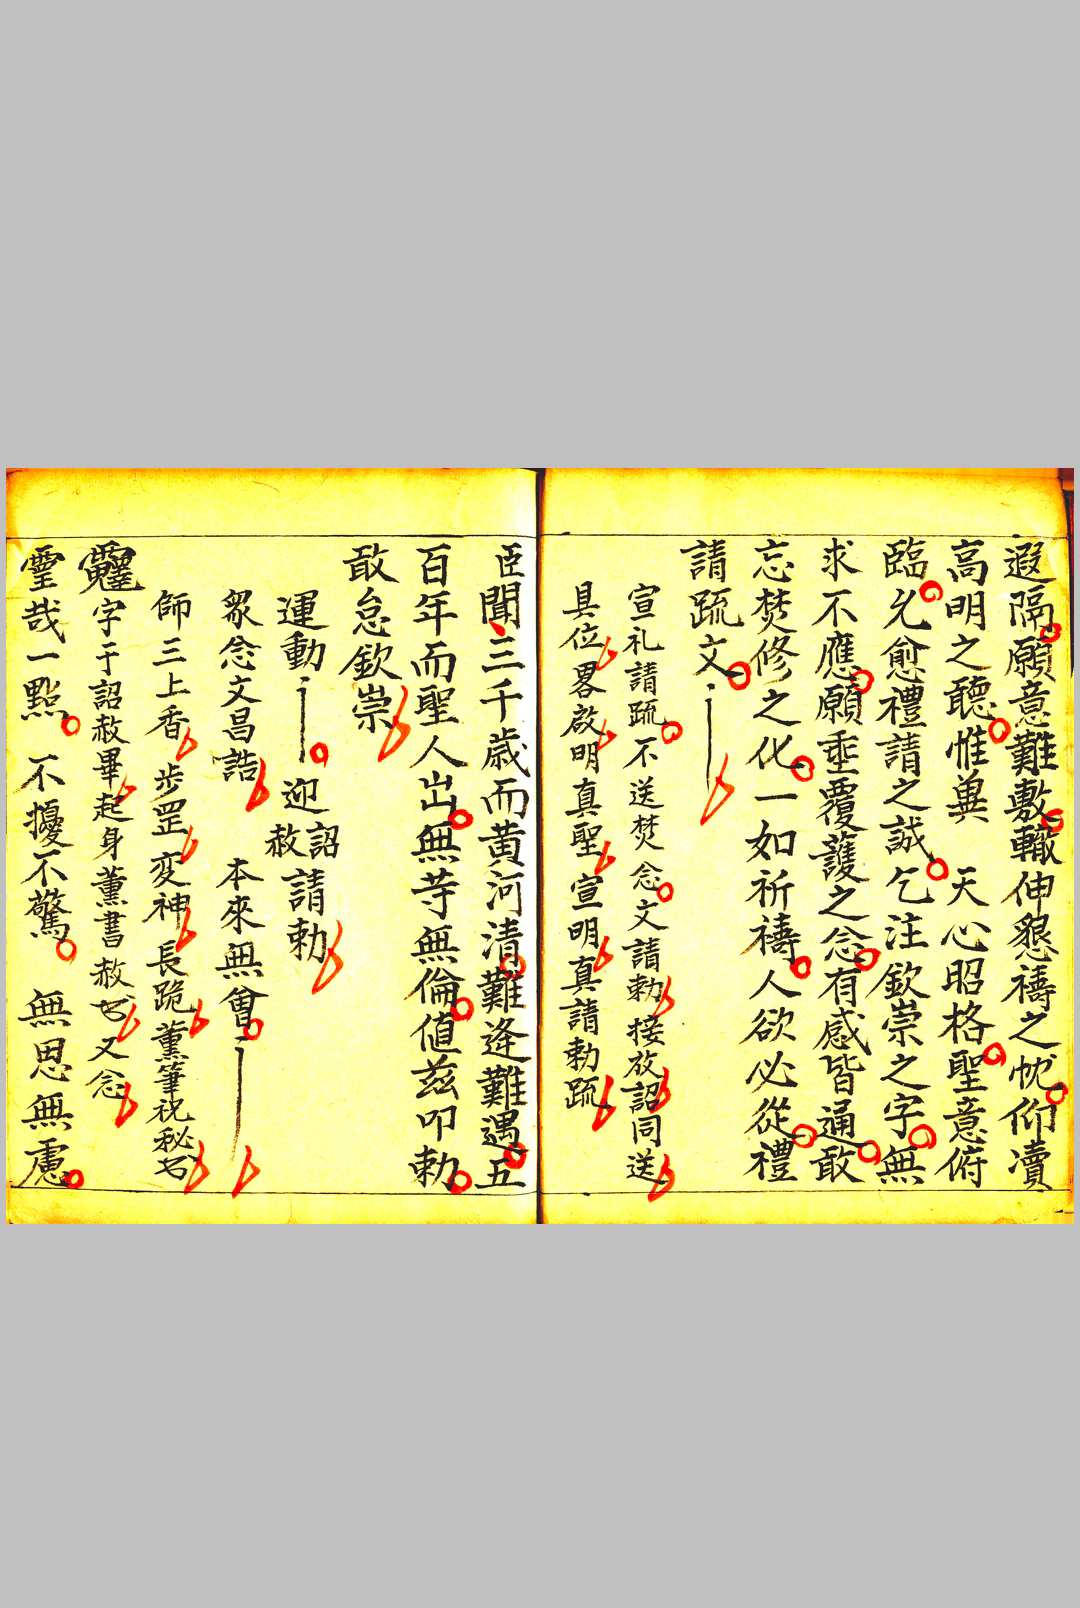 遐隔願意難敷轍伸懇禱之忱仰瀆
高明之聽惟兾　天心昭格聖意俯
臨允愈禮請之誠乞注欽崇之字無
求不應願埀覆護之念有感皆通敢
忘焚修之化一如祈禱人欲必從禮
請疏文
宣礼請疏不送焚念文請勅接放詔同送
具位畧啟明真聖宣明真請勅疏
臣聞三千歳而黄河清難逢難遇五
百年而聖人出無等無倫值兹叩勅
敢怠欽崇
運動　迎詔赦請勅
衆念文昌誥　本來無曾
師三上香步罡変神長跪薰筆祝秘
字于詔赦畢起身薰書赦又念
靈哉一點　不擾不驚　無思無慮